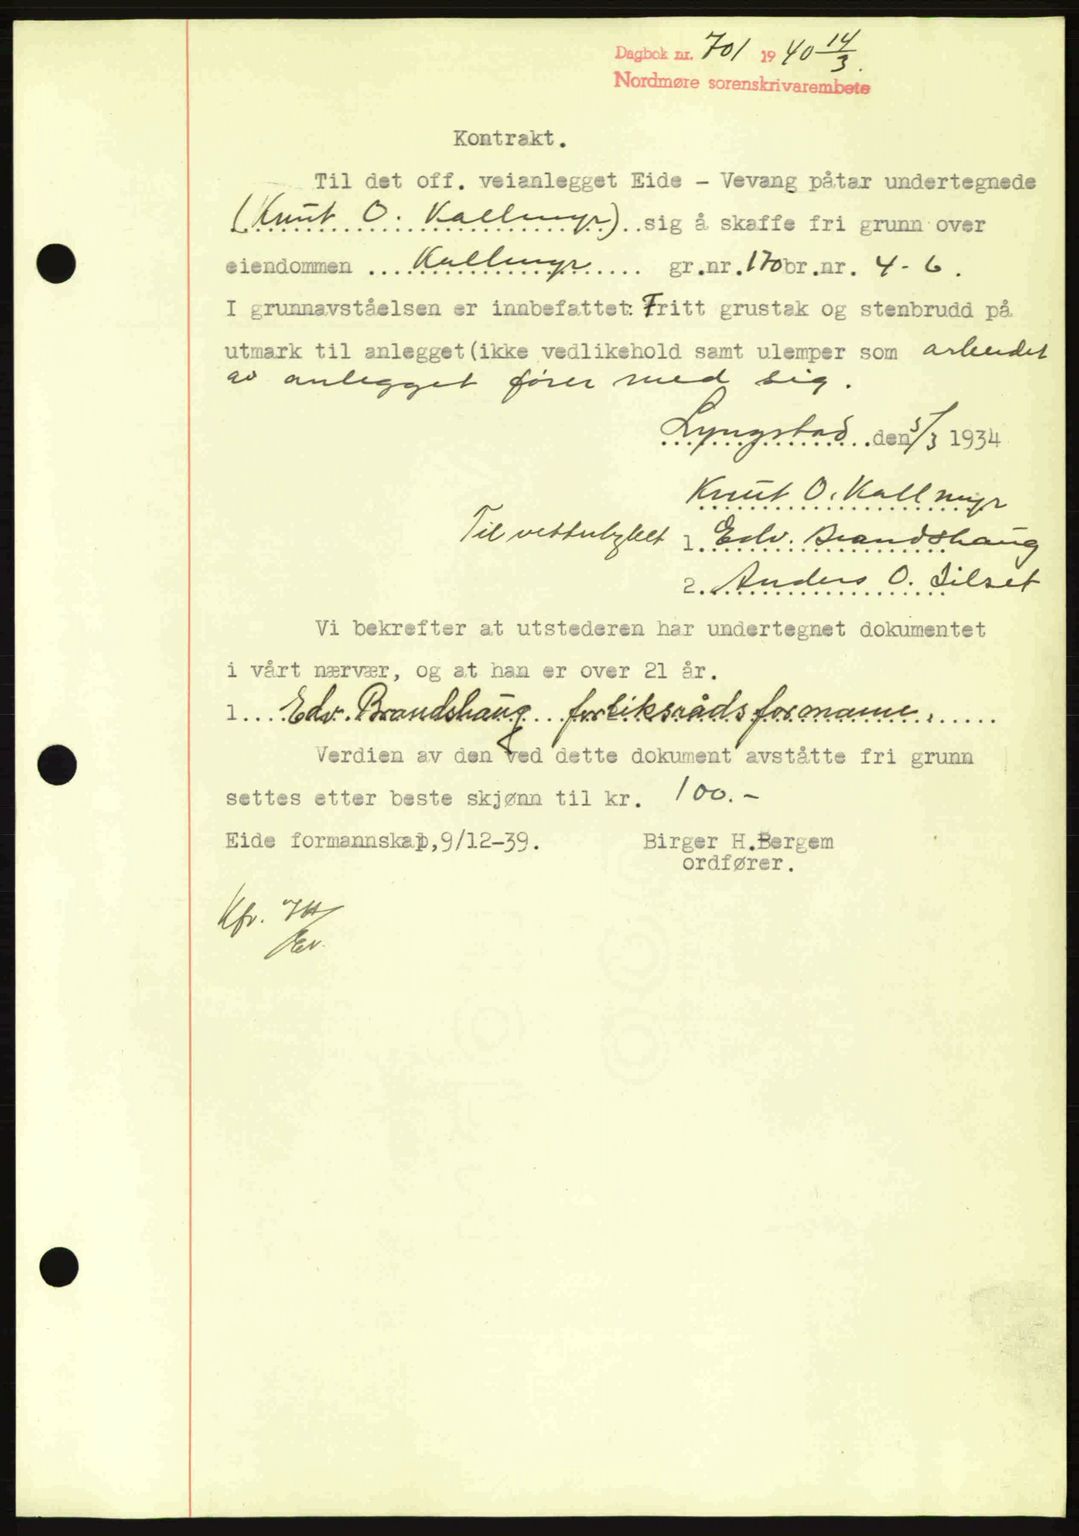 Dagbok nr. 701 1940 14/3.
Nordmøre sorenskrivarembete
Kontrakt.
Til det off. veianlegget Eide - Vevang påtar undertegnede
(Knut O. Kallmyr) sig å skaffe fri grunn over
eiendommen ... Kallmyr ...... gr.nr.170 br.nr. 4-6.
I grunnavståelsen er innbefattet: Fritt grustak og stenbrudd på
utmark til anlegget (ikke vedlikehold samt ulemper som arbeidet
av anlegget fører med sig.
Lyngstad den 5/3 1934
Knut O. Kallmyr
Til vitterlighet 1. Edv. Brandshaug
2. Anders O. Silset
Vi bekrefter at utstederen har undertegnet dokumentet
i vårt nærvær, og at han er over 21 år.
1.... Edv. Brandshaug forliksrådsformann.
Verdien av den ved dette dokument avståtte fri grunn
settes etter beste skjønn til kr. 100.-
Eide formannskap, 9/12-39. Birger H. Bergem
ordfører.
Kfr.